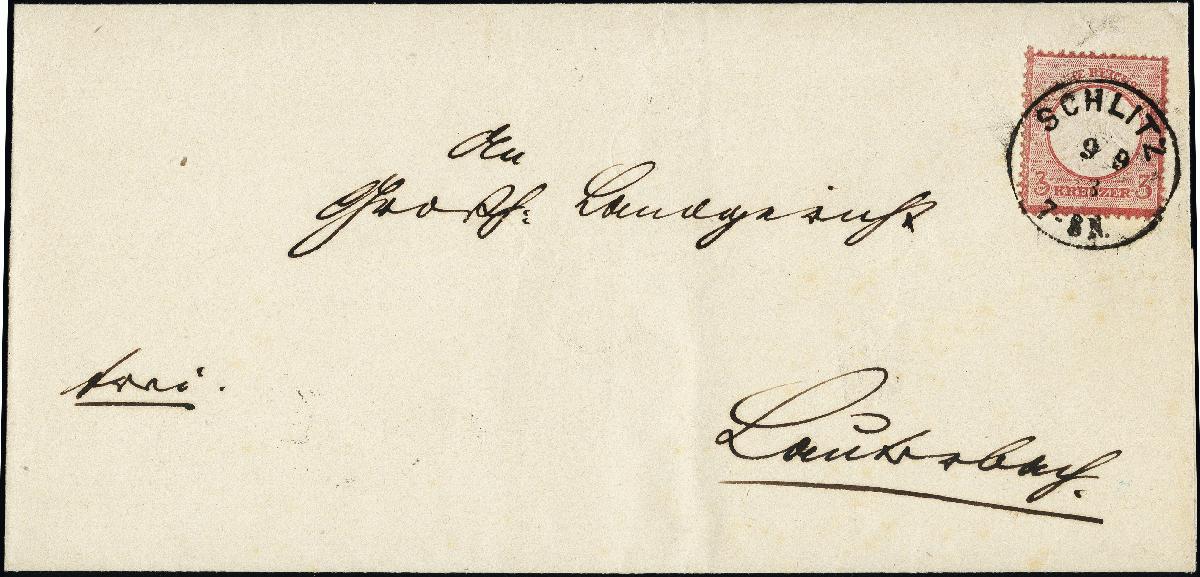 An
Großh: Landgericht
frei.
Lauterbach.
REICHS
3 KREUZER 3
SCHLITZ
9 9
7-8 N.